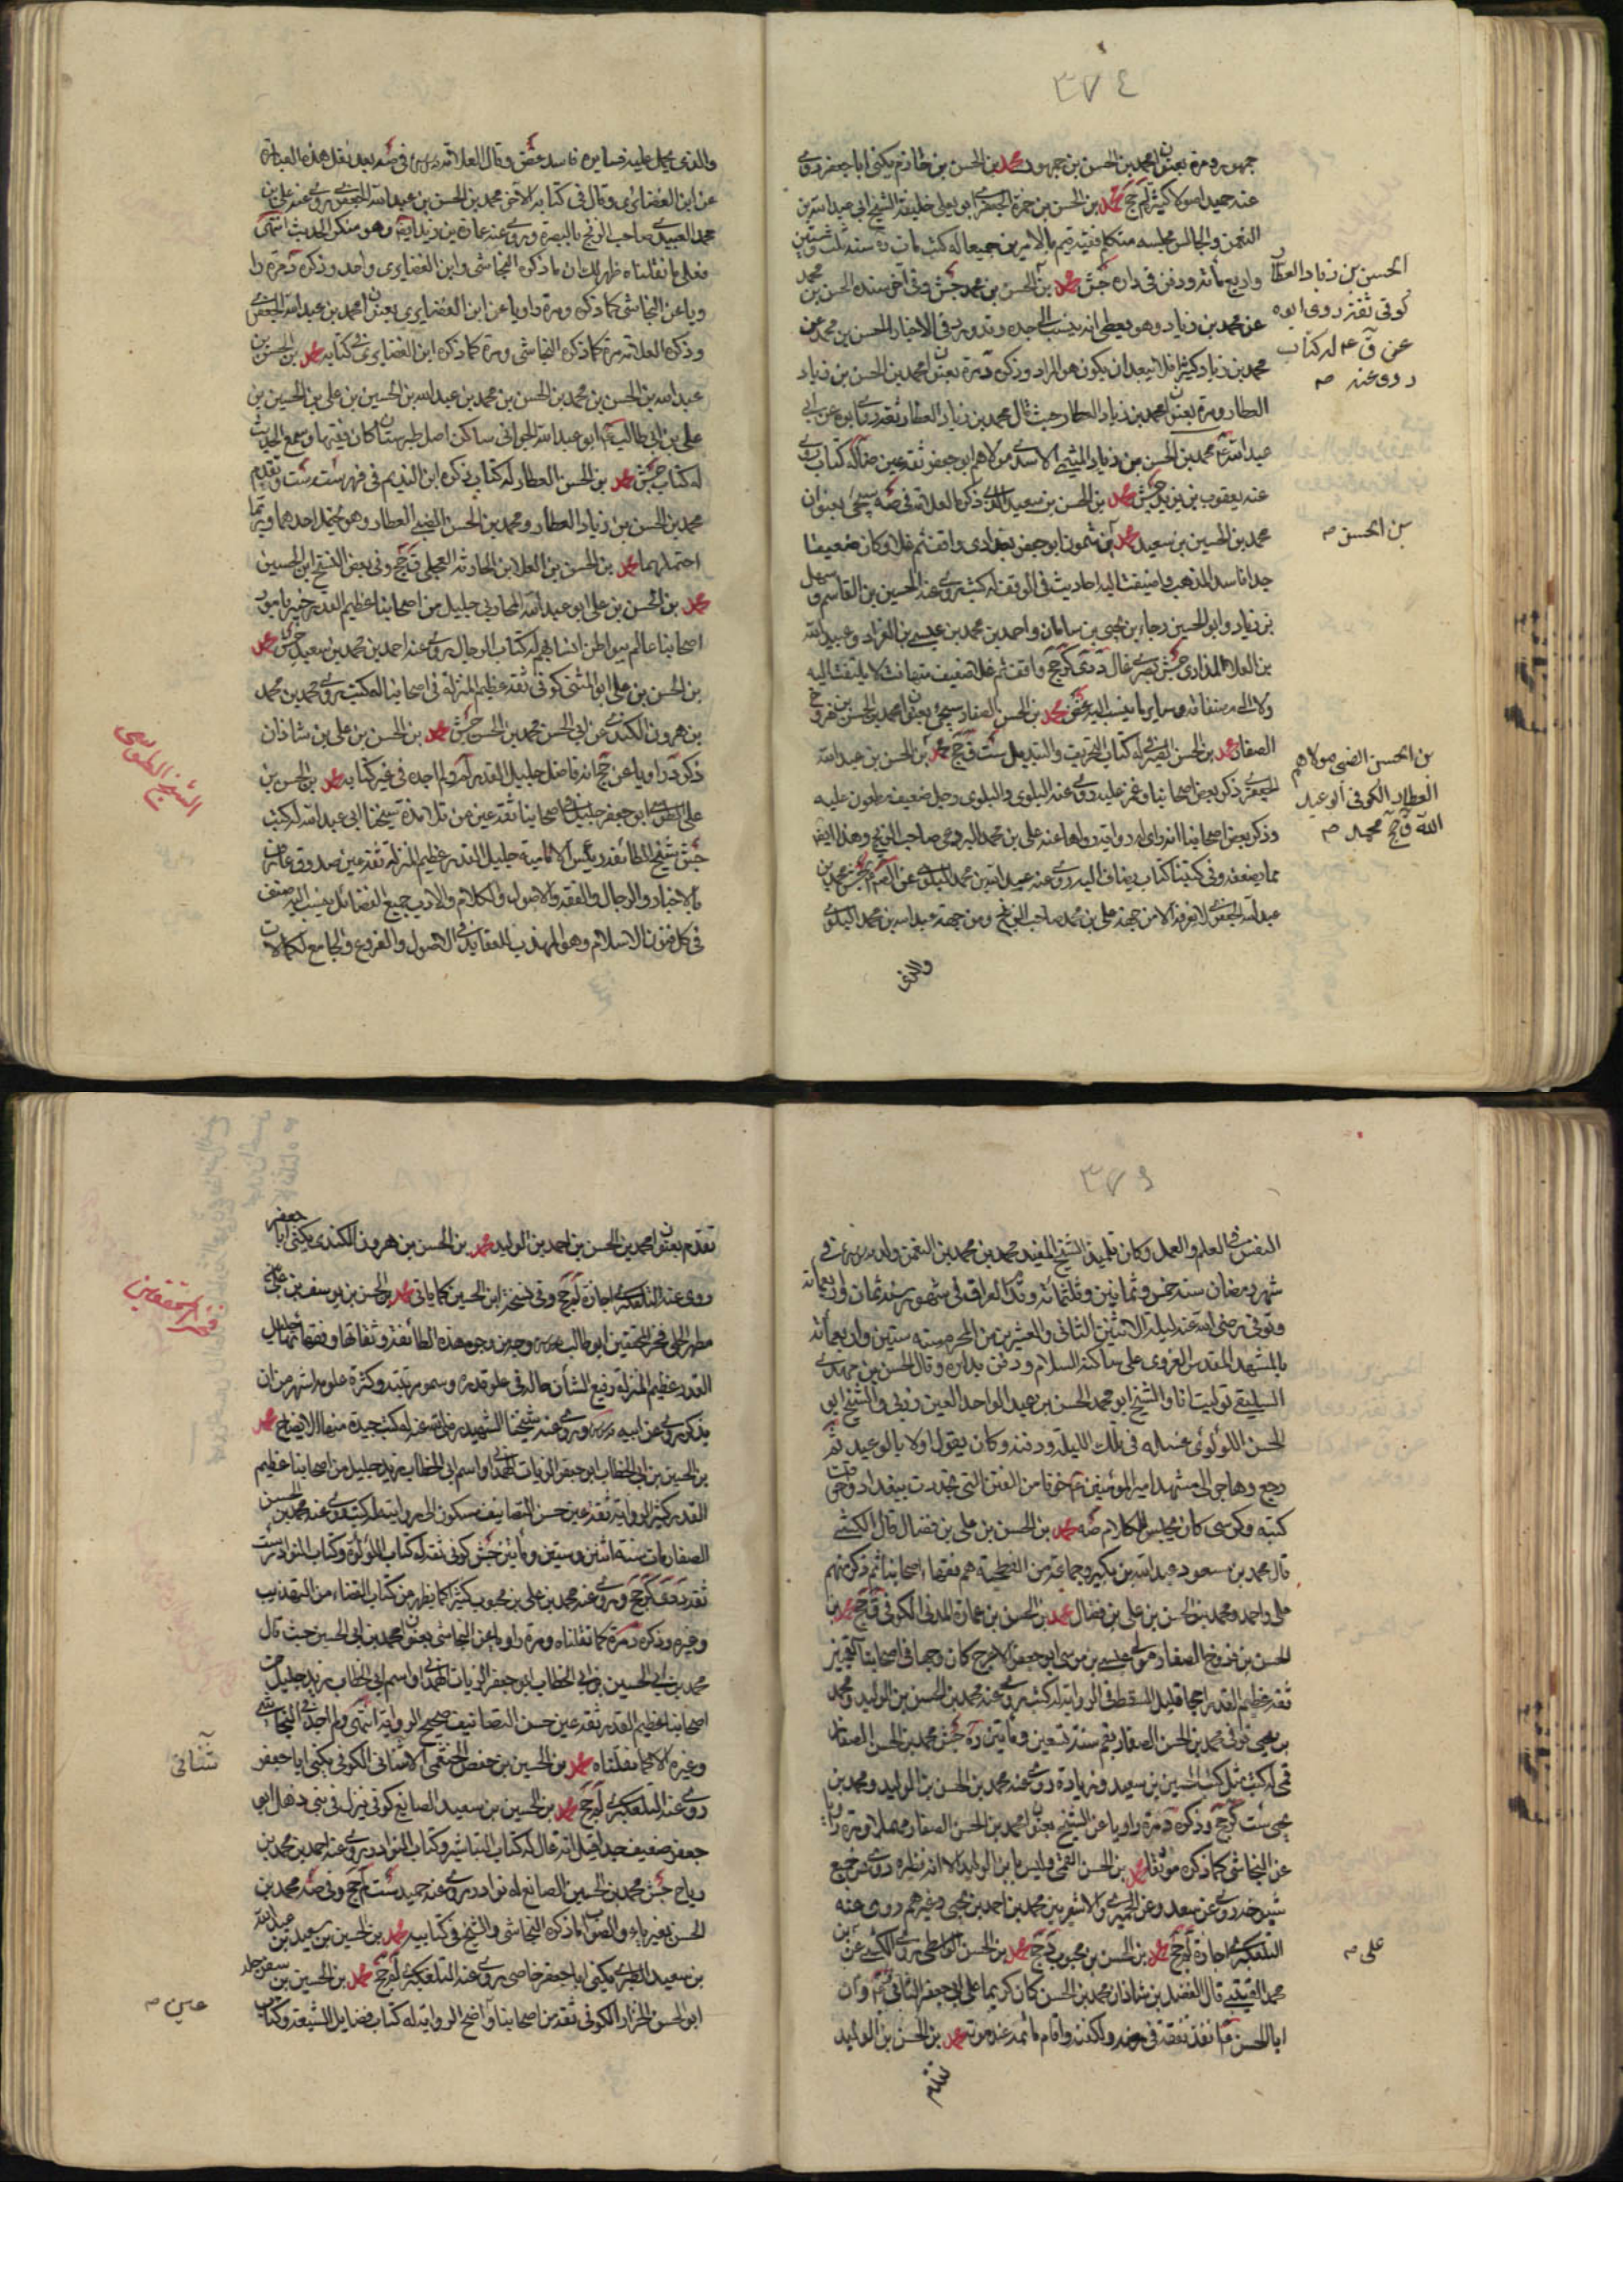 ٣٧٤
جمهور ومرة بعنوان محمد بن الحسن بن جمهور محمد بن الحسن بن خازم يكنى ابا جعفر روى
عنه حميد اصولا كثيرة لم جخ محمد بن الحسن بن حمزة الجعفري ابو يعلى خليفة الشيخ ابي عبد الله بن
النعمن والجالس مجلسه متكلم فقيه قيم بالامرين جميعا له كتب مات ره سنة ثلث وستين
واربعمائة ودفن في داره جش محمد بن الحسن بن محمد جش وفي آخر سنده الحسن بن محمد
عن محمد بن زياد وهو يعطى انه ينسب الى جده وقد ورد في الاخبار الحسن بن محمد عن
محمد بن زياد كثيرا فلا يبعد ان يكون هو المراد وذكره د مرة بعنوان محمد بن الحسن بن زياد
العطار ومرة بعنوان محمد بن زياد العطار حيث قال محمد بن زياد العطار ثقة روى ابوه عن ابي
عبد الله ع محمد بن الحسن بن زياد الميثمي الاسدي مولاهم ابو جعفر ثقة عين ضا له كتاب روى
عنه يعقوب بن يزيد جش محمد بن الحسن بن سعيد ذكره العلامة في ضه سيجئ بعنوان
محمد بن الحسين بن سعيد محمد بن شمون ابو جعفر بغدادي واقف ثم غلا وكان ضعيفا
جدا فاسد المذهب واضيفت اليه احاديث في الوقف له كتب روى عنه الحسين بن القاسم وسهل
بن زياد وابو الحسين رجاء بن يحيى بن سامان واحمد بن محمد بن عيسى بن الغراد وعبيد الله
بن العلا المذاري جش بصري غال دى كر جخ واقف ثم غلا ضعيف متهافت لا يلتفت اليه
ولا الى مصنفاته وساير ما ينسب اليه غض محمد بن الحسن الصفار سيجئ بعنوان محمد بن الحسن بن فروخ
الصفار محمد بن الحسن الصيرفي له كتاب التحريف والتبديل ست ق جخ محمد بن الحسن بن عبد الله
الجعفري ذكره بعض اصحابنا وغمز عليه روى عنه البلوى والبلوى رجل ضعيف مطعون عليه
وذكر بعض اصحابنا انه راى له رواية رواها عنه على بن محمد البرذعي صاحب الزنج وهذا ايضا
مما يضعفه وفي كتبنا كتاب يضاف اليه روى عنه عبد الله بن محمد البلوى محمد بن
عبد الله الجعفري لا نعرفه الا من جهة على بن محمد صاحب الزنج ومن جهة عبد الله بن محمد البلوى
والذى
الحسن بن زياد العطار
كوفي ثقة روى ابوه
عن ق ع له كتاب
روى عنه ص
بن الحسن ص
بن الحسن الضبى مولاهم
العطار الكوفي ابو عبد
الله ق جخ محمد ص
والذى يحمل عليه فسايره فاسد غض وقال العلامة في ضه بعد نقل هذه العبارة
عن ابن الغضائرى وقال في كتابه الآخر محمد بن الحسن بن عبد الله الجعفري روى عنه على بن
محمد العبيدى صاحب الزنج بالبصرة وروى عنه عمارة بن زيد ايضا وهو منكر الحديث انتهى
فعلى ما نقلناه ظهر لك ان ما ذكره النجاشى وابن الغضايرى واحد وذكره د مرة را
ويا عن النجاشى كما ذكره ومرة راويا عن ابن الغضايرى بعنوان محمد بن عبد الله الجعفري
وذكره العلامة مرة كما ذكره النجاشى ومرة كما ذكره ابن الغضايرى في كتابه محمد بن الحسن بن
عبد الله بن الحسن بن محمد بن الحسن بن محمد بن عبد الله بن الحسين بن على بن الحسين بن
على بن ابى طالب ع ابو عبد الله الجوانى ساكن امل طبرستان كان فقيها وسمع الحديث
له كتاب جش محمد بن الحسن العطار له كتاب ذكره ابن النديم في فهرسته ست وتقدم
محمد بن الحسن بن زياد العطار ومحمد بن الحسن الضبى العطار وهو يحتمل احدهما وربما
احتملهما محمد بن الحسن بن العلا بن الحارثه العجلى ق جخ وفي بعض النسخ ابن الحسين
محمد بن الحسن بن على ابو عبد الله المحاربى جليل من اصحابنا عظيم القدر خبير بامور
اصحابنا عالم ببواطن انسابهم له كتاب الرجال روى عنه احمد بن محمد بن سعيد جش محمد
بن الحسن بن على ابو المثنى كوفى ثقة عظيم المنزلة في اصحابنا له كتب روى محمد بن محمد
بن هرون الكندى عن ابى الحسن محمد بن الحسن جش محمد بن الحسن بن على بن شاذان
ذكره د راويا عن جخ انه فاضل جليل القدر لم ولم اجده في غير كتابه محمد بن الحسن بن
على الطوسى ابو جعفر جليل في اصحابنا ثقة عين من تلامذة شيخنا ابى عبد الله له كتب
جش شيخ الطائفة رئيس الامامية جليل القدر عظيم المنزلة ثقة عين صدوق عارف
بالاخبار والرجال والفقه والاصول والكلام والادب جميع الفضائل ينسب اليه صنف
في كل فنون الاسلام وهو المهذب للعقايد في الاصول والفروع والجامع لكمالات
الشيخ الطوسى
٣٧٥
النفس في العلم والعمل وكان تلميذ الشيخ المفيد محمد بن محمد بن النعمن ولد في
شهر رمضان سنة خمس وثمانين وثلثمائة وقدم العراق في شهور سنة ثمان واربعمائة
وتوفى رضى الله عنه ليلة الاثنين الثانى والعشرين من المحرم سنة ستين واربعمائة
بالمشهد المقدس الغروى على ساكنه السلام ودفن بداره وقال الحسن بن مهدى
السليقى توليت انا والشيخ ابو محمد الحسن بن عبد الواحد العين زربى والشيخ ابو
الحسن اللؤلؤى غسله في تلك الليلة ودفنه وكان يقول اولا بالوعيد ثم
رجع وهاجر الى مشهد امير المؤمنين ع خوفا من الفتن التى تجددت ببغداد واحرقت
كتبه وكرسى كان يجلس للكلام ضه محمد بن الحسن بن على بن فضال قال الكشى
قال محمد بن مسعود عبد الله بن بكير وجماعة من الفطحية هم فقهاء اصحابنا ثم ذكر منهم
على واحمد ومحمد بنو الحسن بن على بن فضال محمد بن الحسن بن عمارة المدنى الكوفى ق جخ محمد بن
الحسن بن فروخ الصفار مولى عيسى بن موسى ابو جعفر الاعرج كان وجها في اصحابنا القميين
ثقة عظيم القدر راجحا قليل السقط في الرواية له كتب روى عنه محمد بن الحسن بن الوليد ومحمد
بن يحيى توفى محمد بن الحسن الصفار بقم سنة تسعين ومأتين ره جش محمد بن الحسن الصفار
قمى له كتب مثل كتب الحسين بن سعيد وزيادة روى عنه محمد بن الحسن بن الوليد ومحمد بن
يحيى ست كر جخ وذكره د مرة راويا عن الشيخ بعنوان محمد بن الحسن الصفار مهملا ومرة راويا
عن النجاشى كما ذكره موثقا محمد بن الحسن القمى وليس بابن الوليد الا انه نظيره روى عن جميع
شيوخه روى عن سعد وعن الحميرى والاشعريين محمد بن احمد بن يحيى وغيرهم روى عنه
التلعكبرى اجازة لم جخ محمد بن الحسن بن محبوب لم جخ محمد بن الحسن الواسطى روى الكشى عن
محمد القتيبى قال الفضل بن شاذان محمد بن الحسن كان كريما على ابى جعفر الثانى ع وان
ابا الحسن ع انفذ نفقة في مرضه ولكفنه واقام ماتمه عند موته محمد بن الحسن بن الوليد
على ص
تقدم بعنوان محمد بن الحسن بن احمد بن الوليد محمد بن الحسن بن هرون الكندى يكنى ابا جعفر
روى عنه التلعكبرى اجازة لم جخ وفي نسخة ابن الحسين كما ياتى محمد بن الحسن بن يوسف بن على بن
مطهر الحلى فخر المحققين ابو طالب وجه من وجوه هذه الطائفة وثقاتها وفقهائها جليل
القدر عظيم المنزلة رفيع الشأن حاله في علو قدره وسمو مرتبته وكثرة علومه اشهر من ان
يذكر روى عن ابيه وروى عنه شيخنا الشهيد رضى الله عنه له كتب جيدة منها الايضاح محمد
بن الحسين بن ابى الخطاب ابو جعفر الزيات الهمدانى واسم ابى الخطاب زيد جليل من اصحابنا عظيم
القدر كثير الرواية ثقة عين حسن التصانيف مسكون الى روايته له كتب روى عنه محمد بن الحسن
الصفار مات سنة اثنتين وستين ومأتين جش كوفى ثقة له كتاب اللؤلؤة وكتاب النوادر ست
ثقة د دى كر جخ وروى عنه محمد بن على بن محبوب كثيرا كما يظهر من كتاب القضاء من التهذيب
وغيره وذكره د مرة كما نقلناه ومرة راويا عن النجاشى بعنوان محمد بن ابى الحسين حيث قال
محمد بن ابى الحسين بن ابى الخطاب ابو جعفر الزيات الهمدانى واسم ابى الخطاب زيد جليل من
اصحابنا عظيم القدر ثقة عين حسن التصانيف صحيح الرواية انتهى ولم اجد في النجاشى
وغيره الا كما نقلناه محمد بن الحسين بن حفص الخثعمى الاشنانى الكوفى يكنى ابا جعفر
روى عنه التلعكبرى لم جخ محمد بن الحسين بن سعيد الصائغ كوفى نزل في بنى ذهل ابو
جعفر ضعيف جدا قيل انه غال له كتاب التباشير وكتاب النوادر روى عنه احمد بن محمد بن
رباح جش محمد بن الحسين الصائغ له نوادر روى عنه حميد ست لم جخ وفي ضه محمد بن
الحسن بغير ياء والصواب ما ذكره النجاشى والشيخ في كتابيه محمد بن الحسين بن سعيد بن عبد الله
بن سعيد الطبرى يكنى ابا جعفر خاصى روى عنه التلعكبرى لم جخ محمد بن الحسين بن سفرجله
ابو الحسن الخزاز الكوفى ثقة من اصحابنا واضح الرواية له كتاب فضايل الشيعة وكتاب
فخر المحققين
شنانى
عين ص